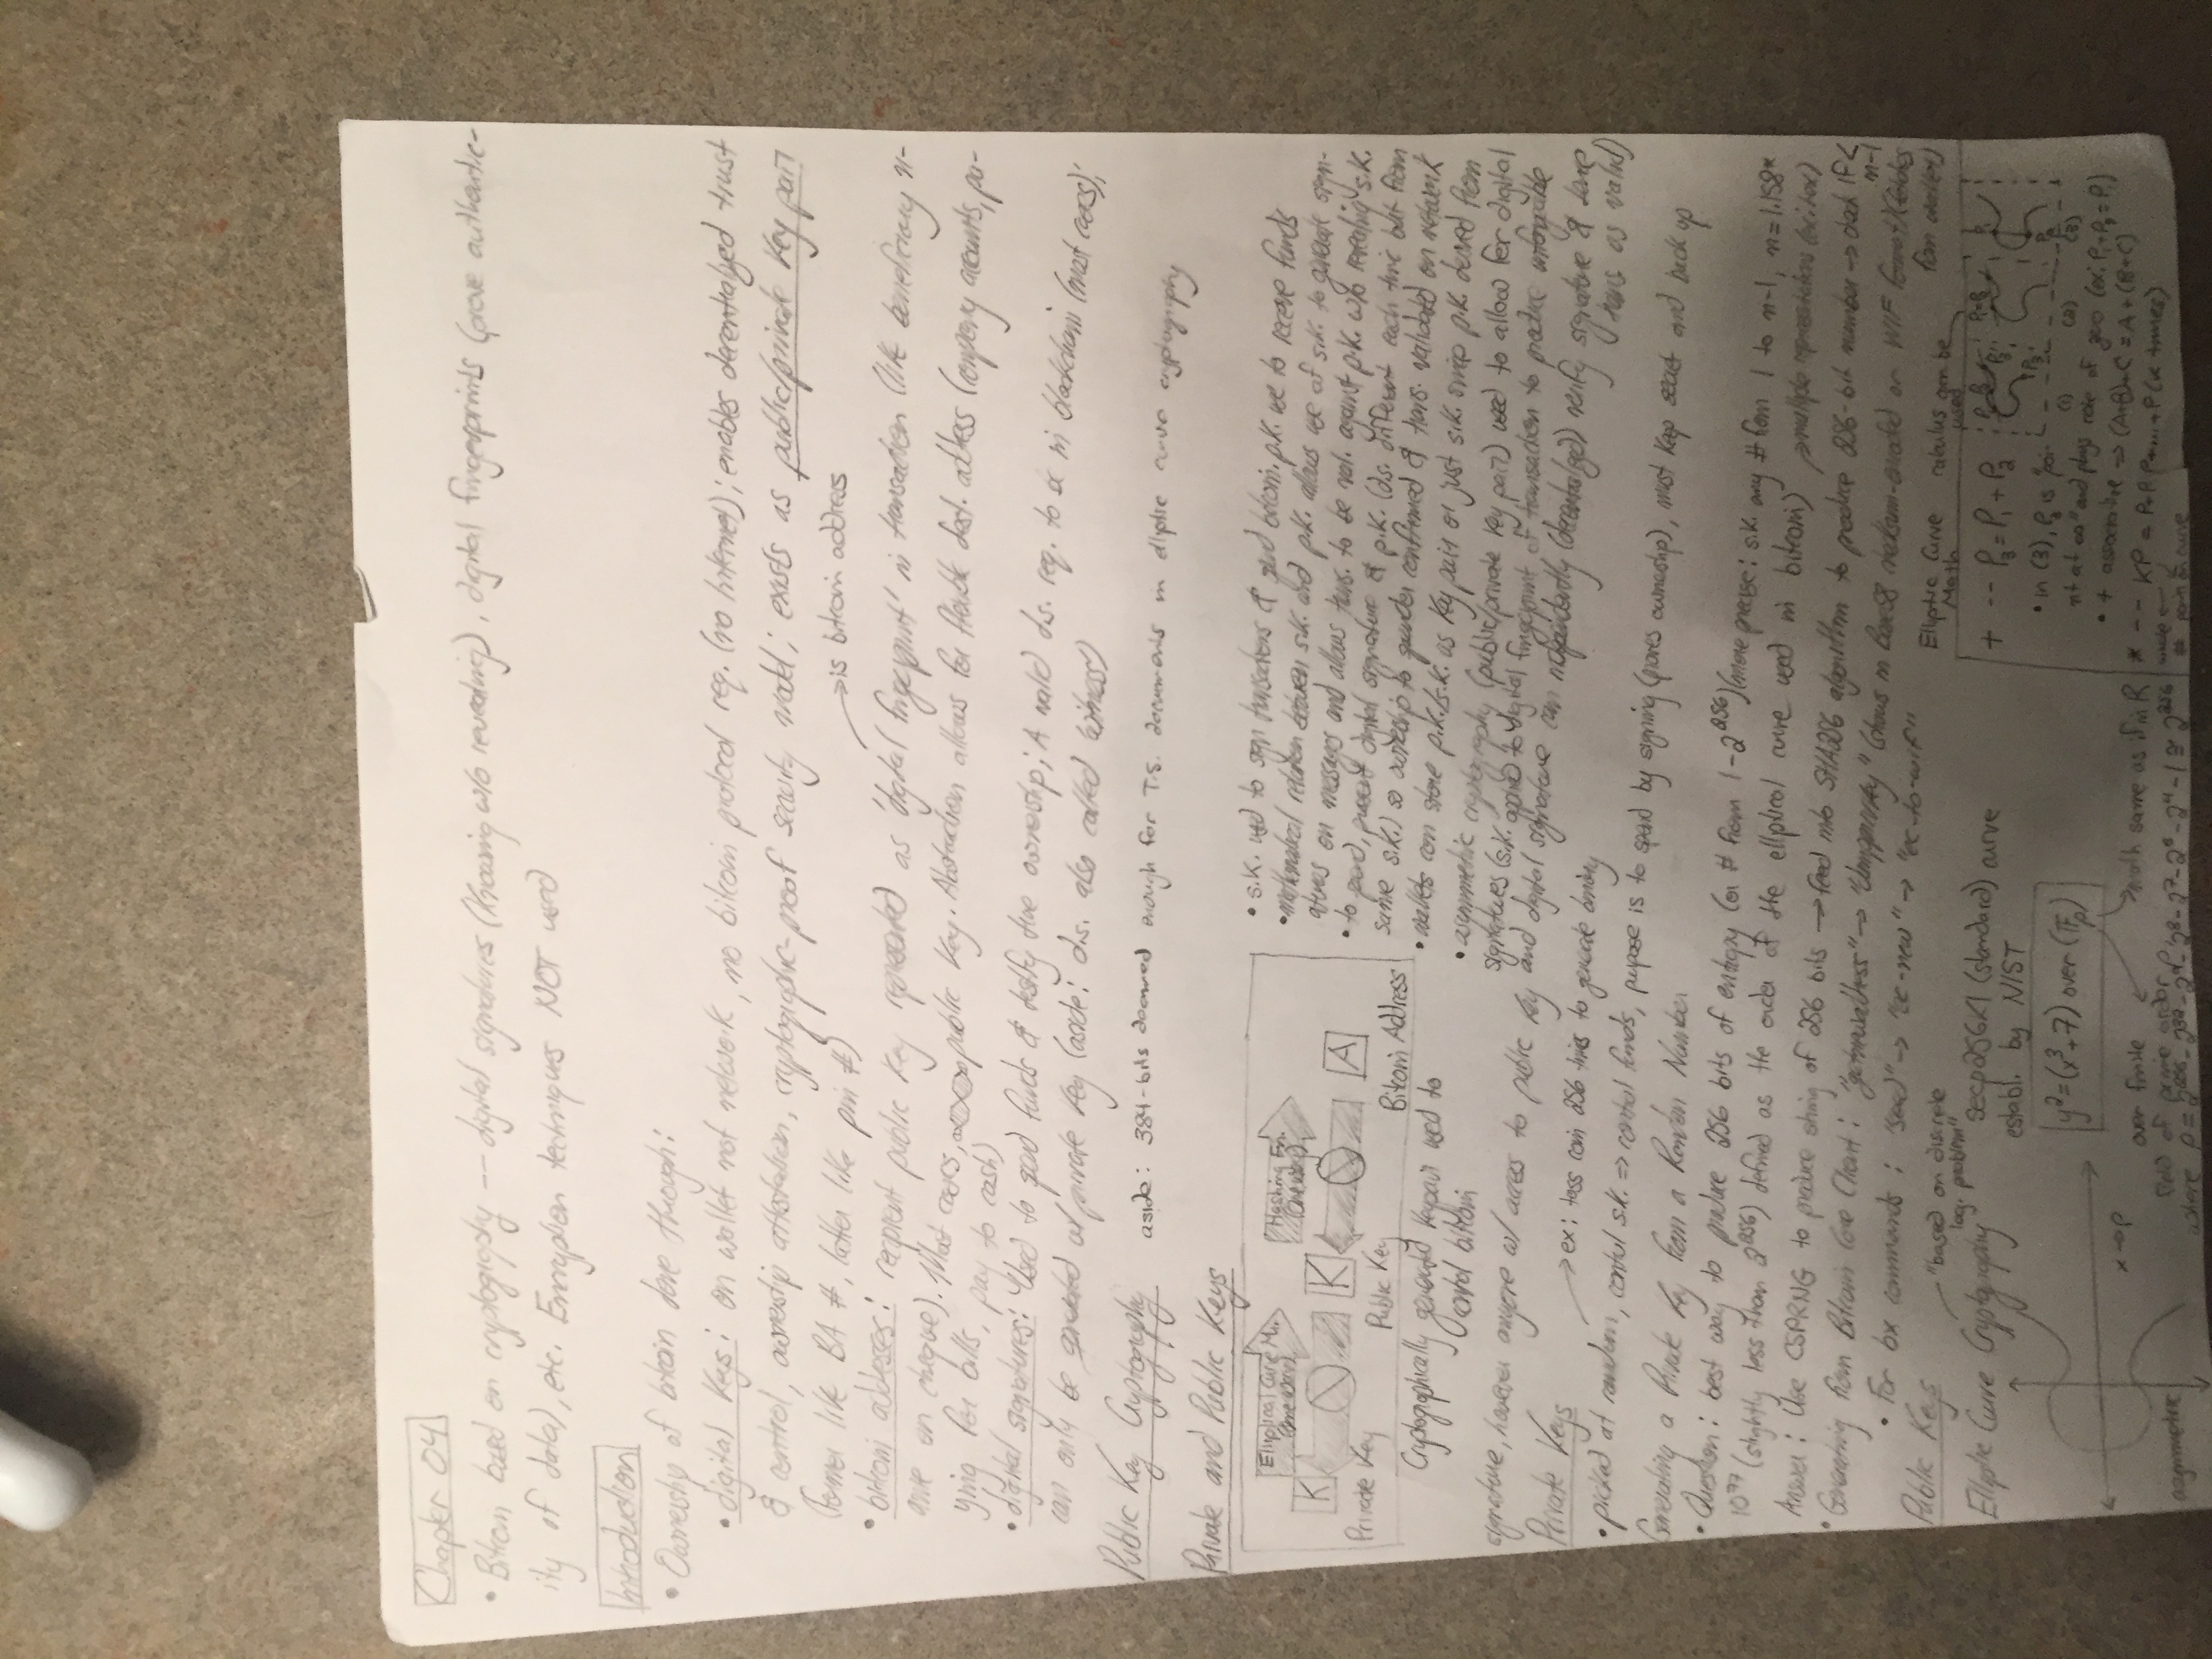 Chapter 04
• Bitcoin based on cryptography -- digital signatures (Knowing w/o revealing), digital fingerprints (prove authentic-
ity of data), etc. Encryption techniques NOT used
Introduction
• Ownership of bitcoin done through:
• digital Keys: on wallet not network, no bitcoin protocol req. (no internet); enables decentralized trust
& control, ownership attestation, cryptographic-proof security model; exists as public/private Key pair
(former like BA #, latter like pin #)
→ is bitcoin address
• bitcoin addresses: recipient public Key represented as 'digital fingerprint' in transaction (like beneficiary n-
ame on cheque). Most cases, public Key. Abstraction allows for flexible dest. address (company accounts, pa-
ying for bills, pay to cash)
• digital signatures: Used to spend funds & testify true ownership; A valid d.s. req. to be in blockchain (most cases);
can only be generated w/ private key (aside: d.s. also called witness)
Public Key Cryptography
aside: 384-bits deemed enough for T.S. documents in eliptic curve cryptography
Private and Public Keys
Elliptical Curve Mu.
(one way)
Hashing Fn.
(one way)
K
K
A
Private Key
Public Key
Bitcoin Address
Cryptographically generated Keypair used to
control bitcoin
• s.k. used to sign transactions & spend bitcoin. p.k. use to receive funds
• mathematical relation between s.k. and p.k. allows use of s.k. to generate sign-
atures on messages and allows trans. to be val. against p.k. w/o revealing s.k.
• to spend, present digital signature & p.k. (d.s. different each time but from
same s.k.) so ownership to spender confirmed & trans. validated on network
• wallets can store p.k./s.k. as Key pair or just s.k. since p.k. derived from
• asymmetric cryptography (public/private key pair) used to allow for digital
signatures (s.k. applied to digital fingerprint of transaction to produce unforgeable
signature, however anyone w/ access to public key and digital signature can independently (decentralized) verify signature & have
trans as valid)
Private Keys
→ ex: toss coin 256 times to generate binary
• picked at random, control s.k. => control funds, pupose is to spend by signing (proves ownership), must keep secret and back up
Generating a Private Key from a Random Number
• Question: best way to produce 256 bits of entropy (or # from 1-2^256) (more precise: s.k. any # from 1 to n-1, n=1.158*
10^77 (slightly less than 2^256) defined as the order of the elliptical curve used in bitcoin)
Answer: Use CSPRNG to produce string of 256 bits → feed into SHA256 algorithm to produce 256-bit number → check if <
n-1
• Generating from Bitcoin Core Client: "getnewaddress" → "dumpprivkey"
• For bx commands: "seed" → "ec-new" → "ec-to-wif"
Public Keys
"based on discrete
log. problem"
Elliptic Curve Cryptography
secp256K1 (standard) curve
establ. by NIST
y² = (x³+7) over (Fp)
math same as if in R
over finite
field of prime order
where p = 2^256 - 2^32 - 2^9 - 2^8 - 2^7 - 2^6 - 2^4 - 1 ≅ 2^256
x→P
Elliptic Curve
Math
calculus can be
used
+ -- P3 = P1 + P2
(1) (2) (3)
• in (3), P3 is "poi-
nt at ∞" and plays role of zero
• + associative => (A+B)+C = A+(B+C)
* -- KP = P+P+P...+P (K times)